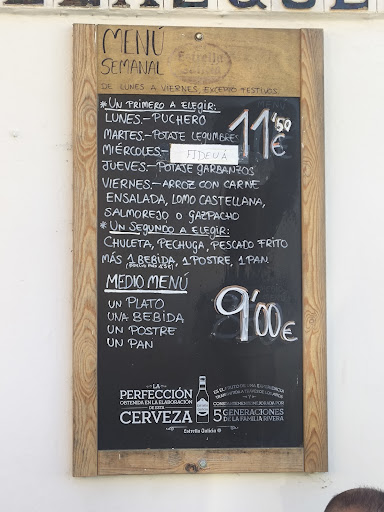 MENÚ
SEMANAL
Estrella
Galicia
DE LUNES A VIERNES, EXCEPTO FESTIVOS.
* UN PRIMERO A ELEGIR:
LUNES.-PUCHERO
MARTES.-POTAJE LEGUMBRES
11'50€
MIÉRCOLES.- FIDEUÁ
JUEVES.-POTAJE GARBANZOS
VIERNES.-ARROZ CON CARNE
ENSALADA, LOMO CASTELLANA,
SALMOREJO O GAZPACHO
* UN SEGUNDO A ELEGIR:
CHULETA, PECHUGA, PESCADO FRITO
MÁS 1 BEBIDA, 1 POSTRE, 1 PAN
MEDIO MENÚ
9'00€
UN PLATO
UNA BEBIDA
UN POSTRE
UN PAN
LA
PERFECCIÓN
OBTENIDA EN LA ELABORACIÓN
DE ESTA
CERVEZA
Y
5 GENERACIONES
DE LA FAMILIA RIVERA
Estrella Galicia